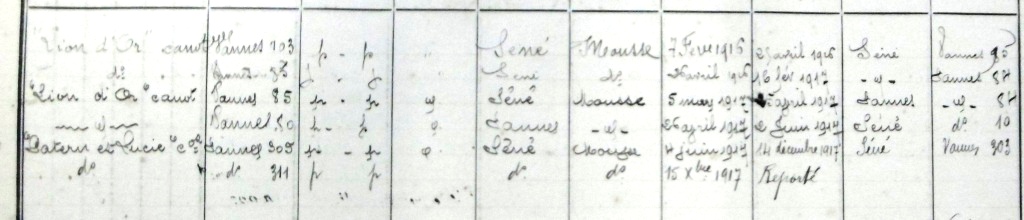 "Lion d'Or" canot Vannes 203 p - p Séné Mousse 7 Févr 1916 avril 1916 Séné Vannes 95
d° p - p Séné d° 26 avril 1916 16 fév 1917 -"- Vannes 84
"Lion d'Or" canot Vannes 85 p - p φ Séné Mousse 5 mars 1917 25 april 1917 Vannes -"- 84
-"- Vannes 50 p - p φ Vannes -"- 25 april 1917 2 Juin 1917 Séné d° 10
"Patern et Lucie" Vannes 305 p - p φ Séné Mousse 4 juin 1917 14 décembre 1917 Séné Vannes 303
d° d° 311 p p d° d° 15 Xbre 1917 Reporté